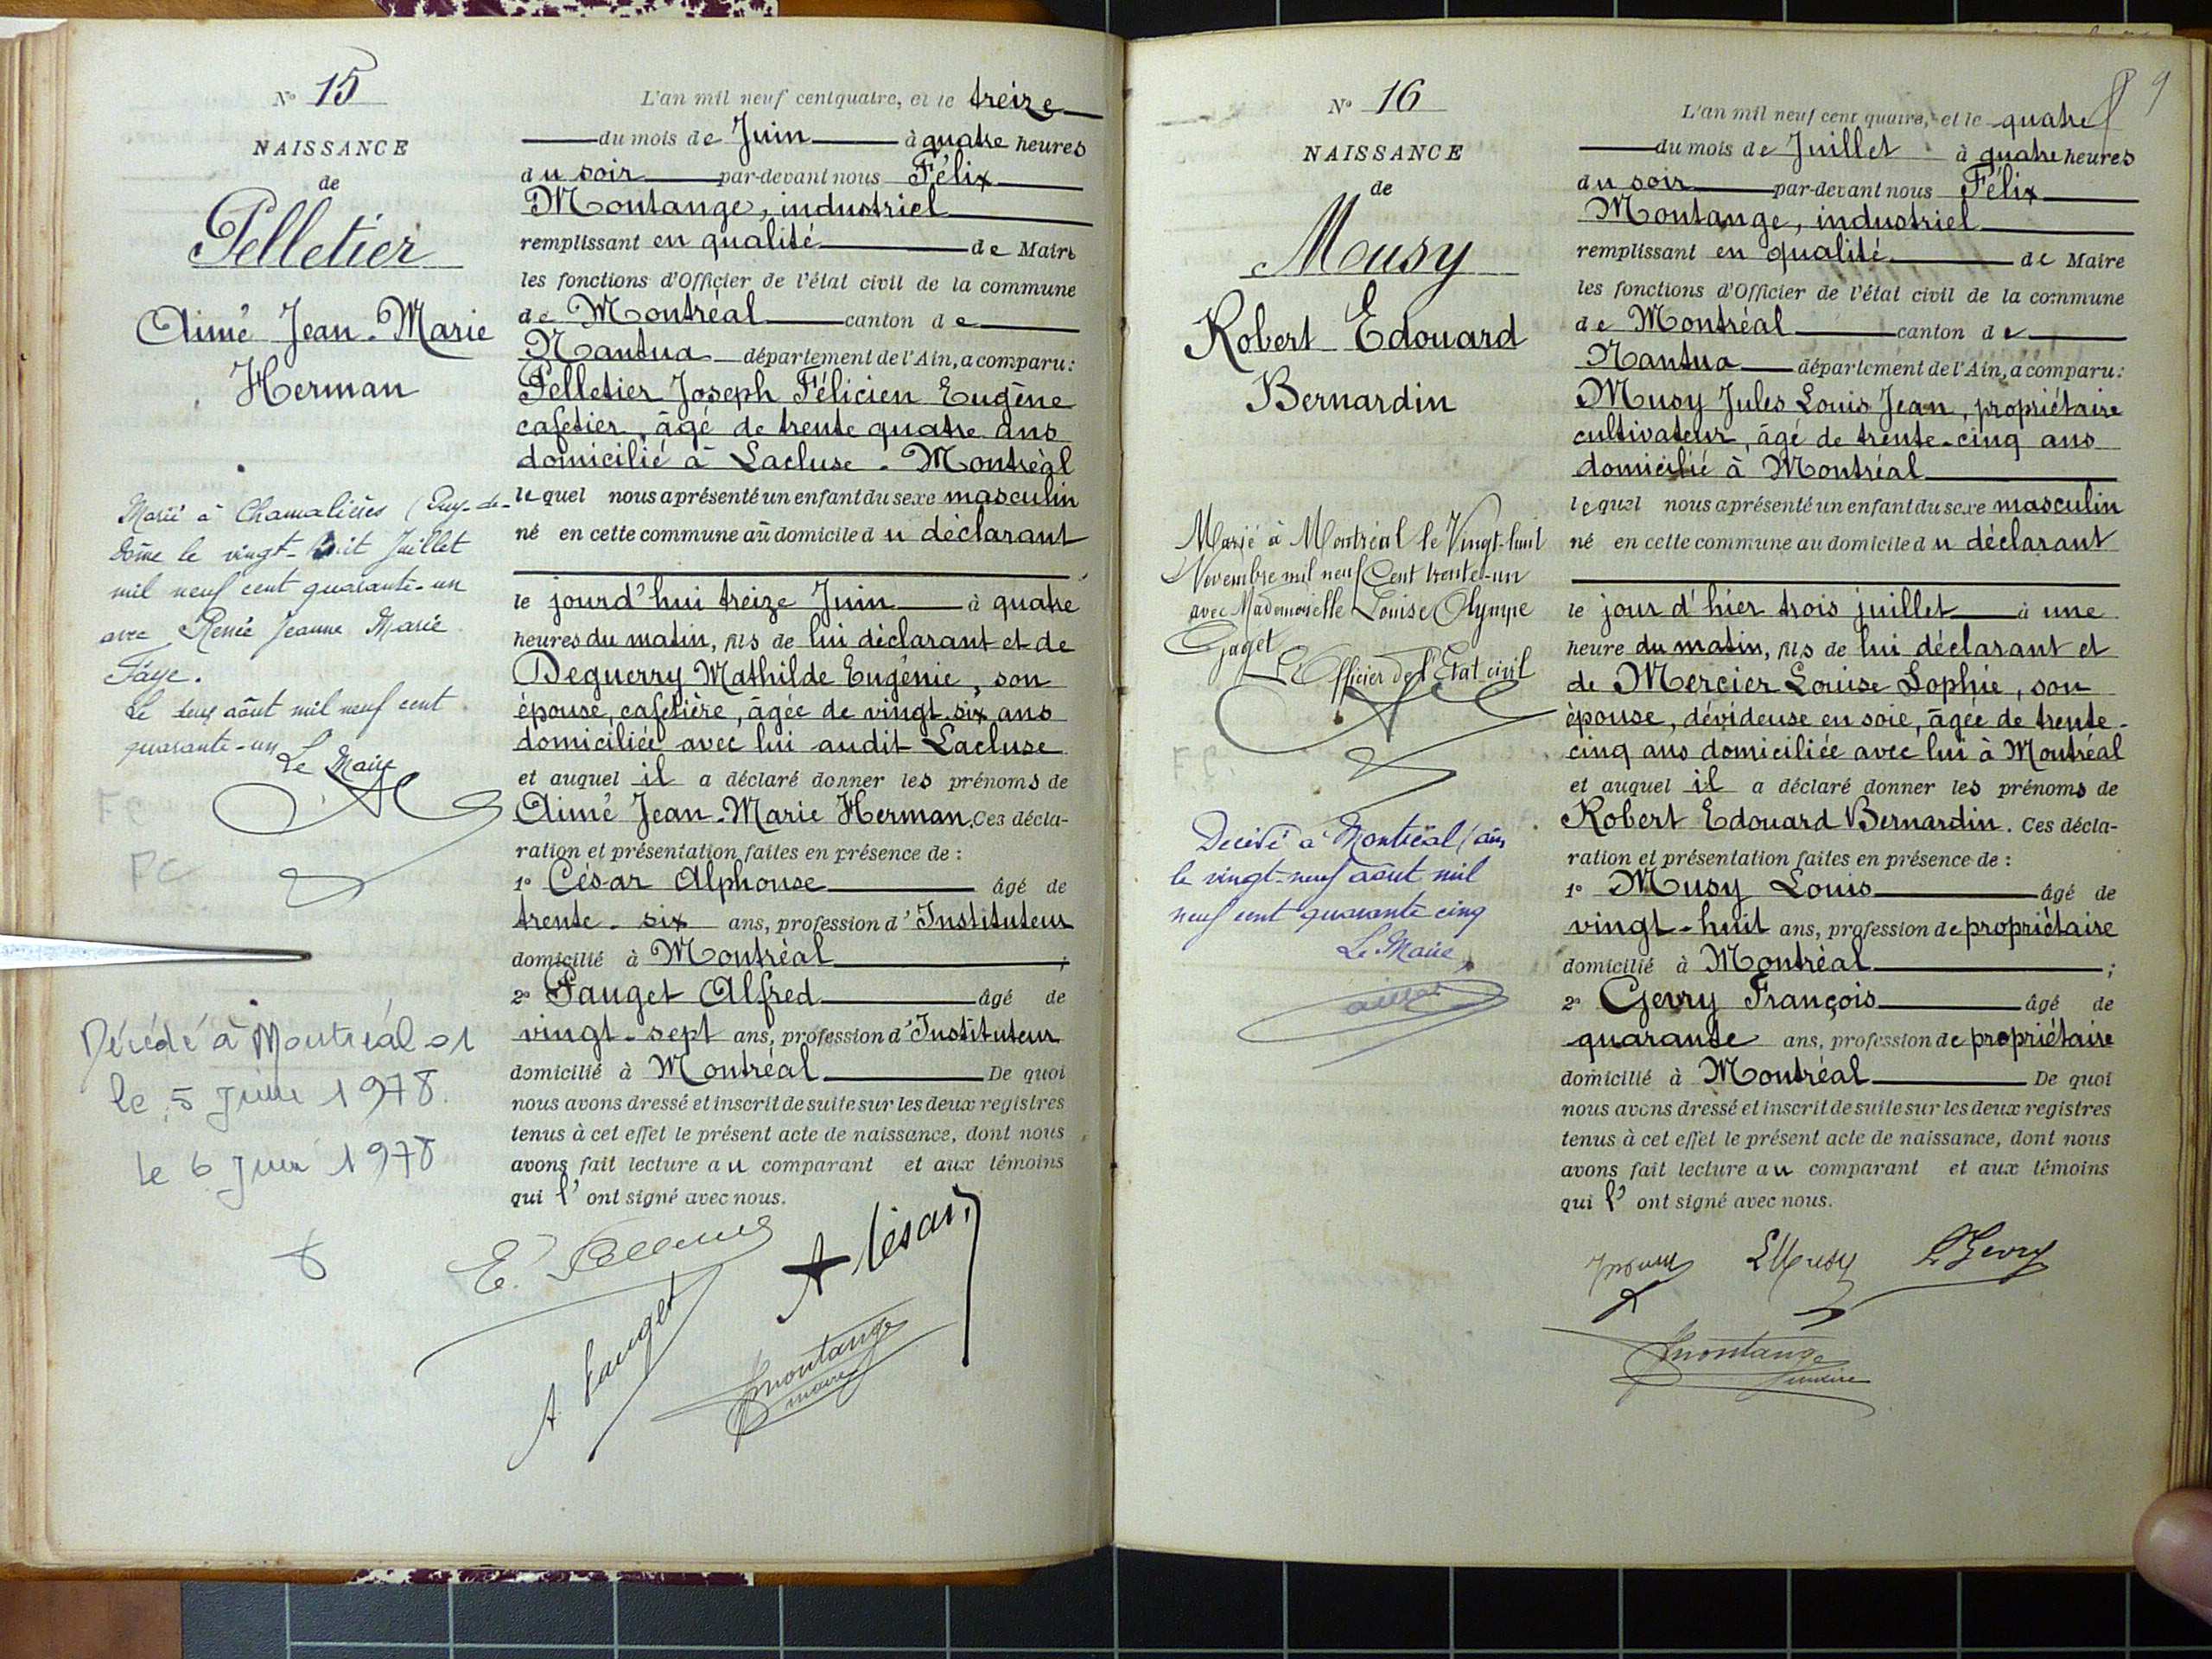 N° 15
NAISSANCE
de
Pelletier
Aimé Jean-Marie
Herman
Marié à Chamalières (Puy-de-
Dôme le vingt-huit Juillet
mil neuf cent quarante-un
avec Renée Jeanne Marie
Faye.
Le deux août mil neuf cent
quarante-un
Le Maire
FG
PC
Décédé à Montréal 01
le 5 Juin 1978.
le 6 Juin 1978
L'an mil neuf cent quatre, et le treize
du mois de Juin à quatre heures
du soir par-devant nous Félix
Montange, industriel
remplissant en qualité de Maire
les fonctions d'Officier de l'état civil de la commune
de Montréal canton de
Nantua département de l'Ain, a comparu :
Pelletier Joseph Félicien Eugène
cafetier, âgé de trente quatre ans
domicilié à Lacluse - Montréal
lequel nous a présenté un enfant du sexe masculin
né en cette commune au domicile du déclarant
le jourd'hui treize Juin à quatre
heures du matin, fils de lui déclarant et de
Deguerry Mathilde Eugénie, son
épouse, cafetière, âgée de vingt-six ans
domiciliée avec lui audit Lacluse
et auquel il a déclaré donner les prénoms de
Aimé Jean-Marie Herman. Ces décla-
ration et présentation faites en présence de :
1° César Alphonse âgé de
trente-six ans, profession d'Instituteur
domicilié à Montréal ;
2° Fauget Alfred âgé de
vingt-sept ans, profession d'Instituteur
domicilié à Montréal De quoi
nous avons dressé et inscrit de suite sur les deux registres
tenus à cet effet le présent acte de naissance, dont nous
avons fait lecture au comparant et aux témoins
qui l'ont signé avec nous.
E. A César
A. Fauget Montange
maire
9
N° 16
NAISSANCE
de
Musy
Robert Edouard
Bernardin
Marié à Montréal le Vingt-huit
Novembre mil neuf Cent trente-un
avec Mademoiselle Louise Olympe
Goget
L'Officier de l'Etat civil
FG
Décédé à Montréal (Ain)
le vingt-neuf août mil
neuf cent quarante cinq
Le Maire
L'an mil neuf cent quatre, et le quatre
du mois de Juillet à quatre heures
du soir par-devant nous Félix
Montange, industriel
remplissant en qualité de Maire
les fonctions d'Officier de l'état civil de la commune
de Montréal canton de
Nantua département de l'Ain, a comparu :
Musy Jules Louis Jean, propriétaire
cultivateur, âgé de trente-cinq ans
domicilié à Montréal
lequel nous a présenté un enfant du sexe masculin
né en cette commune au domicile du déclarant
le jour d'hier trois juillet à une
heure du matin, fils de lui déclarant et
de Mercier Louise Sophie, son
épouse, dévideuse en soie, âgée de trente-
cinq ans domiciliée avec lui à Montréal
et auquel il a déclaré donner les prénoms de
Robert Edouard Bernardin. Ces décla-
ration et présentation faites en présence de :
1° Musy Louis âgé de
vingt-huit ans, profession de propriétaire
domicilié à Montréal ;
2° Gevry François âgé de
quarante ans, profession de propriétaire
domicilié à Montréal De quoi
nous avons dressé et inscrit de suite sur les deux registres
tenus à cet effet le présent acte de naissance, dont nous
avons fait lecture au comparant et aux témoins
qui l'ont signé avec nous.
L Musy F Gevry
Montange
maire